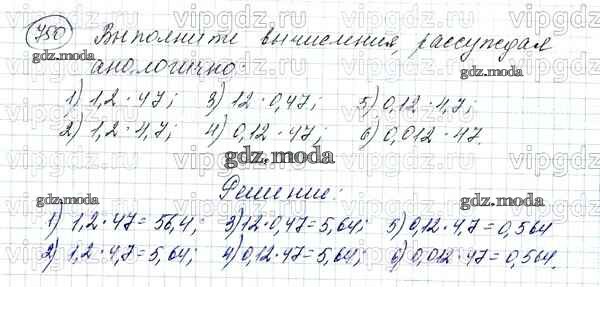 750 Выполните вычисления, рассуждая
анологично:
1) 1,2 · 47; 3) 12 · 0,47; 5) 0,12 · 4,7;
2) 1,2 · 4,7; 4) 0,12 · 47; 6) 0,012 · 47.
Решение:
1) 1,2 · 47 = 56,4; 3) 12 · 0,47 = 5,64; 5) 0,12 · 4,7 = 0,564
2) 1,2 · 4,7 = 5,64; 4) 0,12 · 47 = 5,64; 6) 0,012 · 47 = 0,564.
gdz.moda
gdz.moda
gdz.moda
gdz.moda
gdz.moda
vipgdz
vipgdz
vipgdz
vipgdz